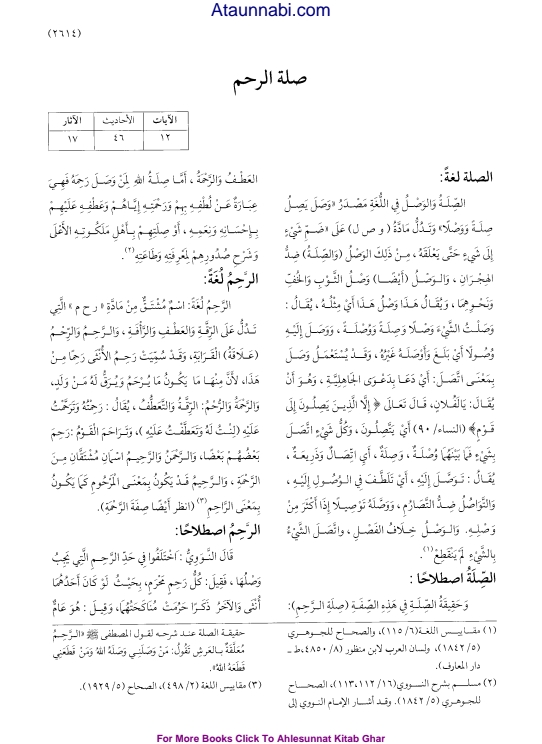 Ataunnabi.com
(٢٦١٤)
صلة الرحم
الآيات الأحاديث الآثار
١٢ ٤٦ ١٧
الصلة لغةً:
الصِّلَةُ وَالوَصْلُ فِي اللُّغَةِ مَصْدَرُ «وَصَلَ يَصِلُ
صِلَةً وَوَصْلًا» وَتَدُلُّ مَادَّةُ (و ص ل) عَلَى «ضَمِّ شَيْءٍ
إِلَى شَيْءٍ حَتَّى يَعْلَقَهُ، مِنْ ذَلِكَ الوَصْلُ (وَالصِّلَةُ) ضِدُّ
الهِجْرَانِ، وَالوَصْلُ (أَيْضًا) وَصْلُ الثَّوْبِ وَالخُفِّ
وَنَحْوِهِمَا، وَيُقَالُ هَذَا وَصْلُ هَذَا أَيْ مِثْلُهُ، يُقَالُ:
وَصَلْتُ الشَّيْءَ وَصْلًا وَصِلَةً وَوُصْلَةً، وَوَصَلَ إِلَيْهِ
وُصُولًا أَيْ بَلَغَ وَأَوْصَلَهُ غَيْرُهُ، وَقَدْ يُسْتَعْمَلُ وَصَلَ
بِمَعْنَى اتَّصَلَ: أَيْ دَعَا بِدَعْوَى الجَاهِلِيَّةِ، وَهُوَ أَنْ
يُقَالَ: يَالَفُلَانٍ، قَالَ تَعَالَى ﴿إِلَّا الَّذِينَ يَصِلُونَ إِلَى
قَوْمٍ﴾ (النساء/ ٩٠) أَيْ يَتَّصِلُونَ، وَكُلُّ شَيْءٍ اتَّصَلَ
بِشَيْءٍ فَمَا بَيْنَهُمَا وُصْلَةٌ، وَصِلَةٌ، أَيْ اتِّصَالٌ وَذَرِيعَةٌ،
يُقَالُ: تَوَصَّلَ إِلَيْهِ، أَيْ تَلَطَّفَ فِي الوُصُولِ إِلَيْهِ،
وَالتَّوَاصُلُ ضِدُّ التَّصَارُمِ، وَوَصَّلَهُ تَوْصِيلًا إِذَا أَكْثَرَ مِنْ
وَصْلِهِ. وَالوَصْلُ خِلَافُ الفَصْلِ، وَاتَّصَلَ الشَّيْءُ
بِالشَّيْءِ لَمْ يَنْقَطِعْ(١).
الصِّلَةُ اصطلاحًا:
وَحَقِيقَةُ الصِّلَةِ فِي هَذِهِ الصِّفَةِ (صِلَةِ الرَّحِمِ):
العَطْفُ وَالرَّحْمَةُ، أَمَّا صِلَةُ اللهِ لِمَنْ وَصَلَ رَحِمَهُ فَهِيَ
عِبَارَةٌ عَنْ لُطْفِهِ بِهِمْ وَرَحْمَتِهِ إِيَّاهُمْ وَعَطْفِهِ عَلَيْهِمْ
بِإِحْسَانِهِ وَنِعَمِهِ، أَوْ صِلَتِهِمْ بِأَهْلِ مَلَكُوتِهِ الأَعْلَى
وَشَرْحِ صُدُورِهِمْ لِمَعْرِفَتِهِ وَطَاعَتِهِ(٢).
الرَّحِمُ لُغَةً:
الرَّحِمُ لُغَةً: اسْمٌ مُشْتَقٌّ مِنْ مَادَّةِ «ر ح م» الَّتِي
تَدُلُّ عَلَى الرِّقَّةِ وَالعَطْفِ وَالرَّأْفَةِ، وَالرَّحِمُ وَالرِّحْمُ
(عَلَاقَةُ) القَرَابَةِ، وَقَدْ سُمِّيَتْ رَحِمُ الأُنْثَى رَحِمًا مِنْ
هَذَا، لأَنَّ مِنْهَا مَا يَكُونُ مَا يُرْحَمُ وَيُرَقُّ لَهُ مِنْ وَلَدٍ،
وَالرَّحْمَةُ وَالرُّحْمُ: الرِّقَّةُ وَالتَّعَطُّفُ، يُقَالُ: رَحِمْتُهُ وَتَرَحَّمْتُ
عَلَيْهِ (لِنْتُ لَهُ وَتَعَطَّفْتُ عَلَيْهِ)، وَتَرَاحَمَ القَوْمُ: رَحِمَ
بَعْضُهُمْ بَعْضًا، وَالرَّحْمَنُ وَالرَّحِيمُ اسْمَانِ مُشْتَقَّانِ مِنَ
الرَّحْمَةِ، وَالرَّحِيمُ قَدْ يَكُونُ بِمَعْنَى المَرْحُومِ كَمَا يَكُونُ
بِمَعْنَى الرَّاحِمِ(٣) (انظر أَيْضًا صِفَةَ الرَّحْمَةِ).
الرَّحِمُ اصطلاحًا:
قَالَ النَّوَوِيُّ: اخْتَلَفُوا فِي حَدِّ الرَّحِمِ الَّتِي يَجِبُ
وَصْلُهَا، فَقِيلَ: كُلُّ رَحِمٍ مَحْرَمٍ، بِحَيْثُ لَوْ كَانَ أَحَدُهُمَا
أُنْثَى وَالآخَرُ ذَكَرًا حَرُمَتْ مُنَاكَحَتُهُمَا، وَقِيلَ: هُوَ عَامٌّ
(١) مقاييس اللغة(٦/ ١١٥)، والصحاح للجوهري
(٥/ ١٨٤٢)، ولسان العرب لابن منظور (٨/ ٤٨٥٠،ط -
دار المعارف).
(٢) مسلم بشرح النووي(١٦/ ١١٢،١١٣)، الصحاح
للجوهري (٥/ ١٨٤٢). وقد أشار الإمام النووي إلى
حقيقة الصلة عند شرحه لقول المصطفى ﷺ «الرَّحِمُ
مُعَلَّقَةٌ بالعَرْشِ تَقُولُ: مَنْ وَصَلَنِي وَصَلَهُ اللهُ وَمَنْ قَطَعَنِي
قَطَعَهُ اللهُ».
(٣) مقاييس اللغة (٢/ ٤٩٨)، الصحاح (٥/ ١٩٢٩).
For More Books Click To Ahlesunnat Kitab Ghar